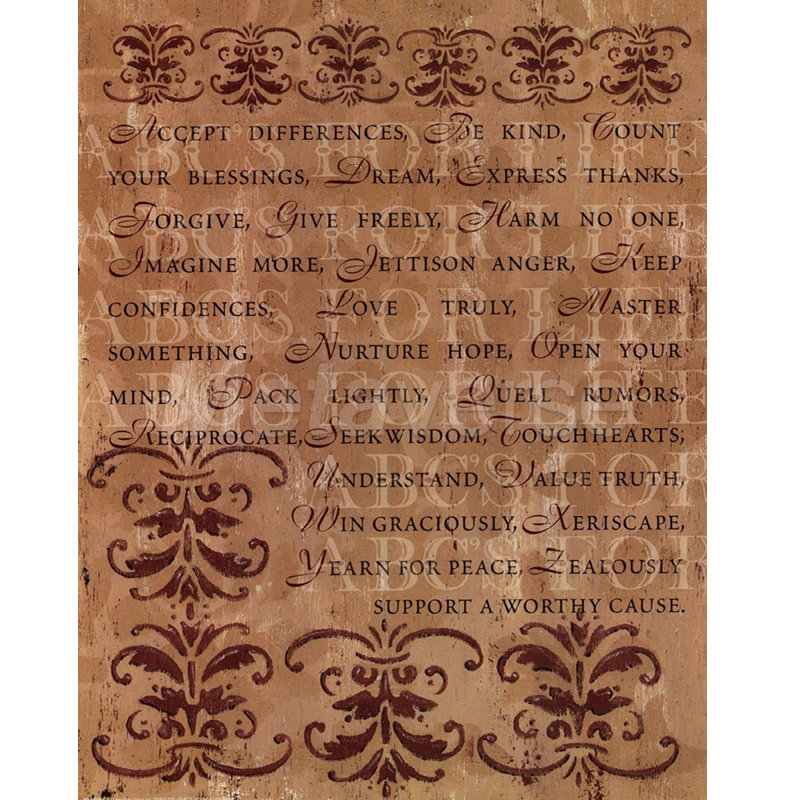 Accept differences, Be kind, Count
your blessings, Dream, Express thanks,
Forgive, Give freely, Harm no one,
Imagine more, Jettison anger, Keep
confidences, Love truly, Master
something, Nurture hope, Open your
mind, Pack lightly, Quell rumors,
Reciprocate, Seek wisdom, Touch hearts;
Understand, Value truth,
Win graciously, Xeriscape,
Yearn for peace, Zealously
support a worthy cause.
ABCS FOR LIFE
ABCS FOR LIFE
ABCS FOR LIFE
ABCS FOR LIFE
ABCS FOR
ABCS FOR